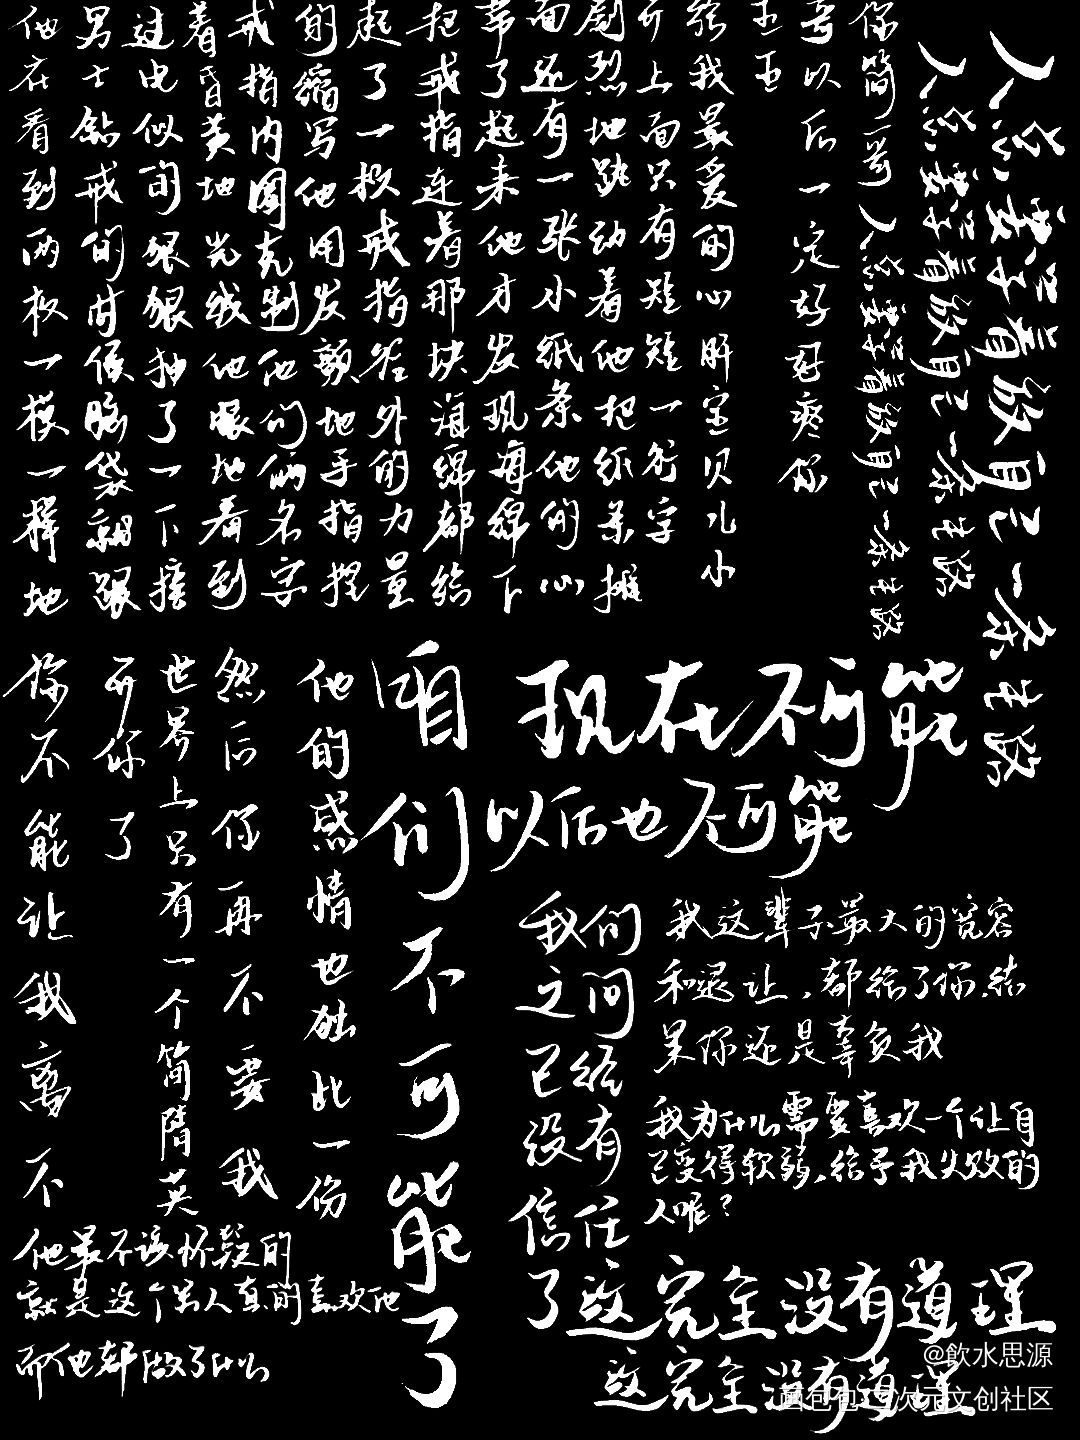 他在看到两枚一模一样地
男士钻戒的时候脑袋就跟
过电似的狠狠抽了一下接
着昏黄地光线他眼地看到
戒指内圈克制他们俩名字
的缩写他用发颤地手指捏
起了一枚戒指答外的力量
把戒指连着那块海绵都给
带了起来他才发现海绵下
面还有一张小纸条他的心
剧烈地跳动着他把纸条摊
开上面只有短短一行字
给我最爱的心肝宝贝儿小
王王
哥以后一定好好疼你
你简哥
人总要学着放自己一条生路
人总要学着放自己一条生路
人总要学着放自己一条生路
你不能让我离不
开你了
世界上只有一个简隋英
然后你再不要我
他的感情也独此一份
咱们不可能了
现在不可能
以后也不可能
我们
之间
已经
没有
信任
了这完全没有道理
这完全没有道理
我这辈子最大的宽容
和退让,都给了你,结
果你还是辜负我
我为什么需要喜欢一个让自
己变得软弱,给予我失败的
人呢?
他最不该怀疑的
就是这个男人真的喜欢他
而他都做了什么
@飲水思源
画包包·二次元文创社区